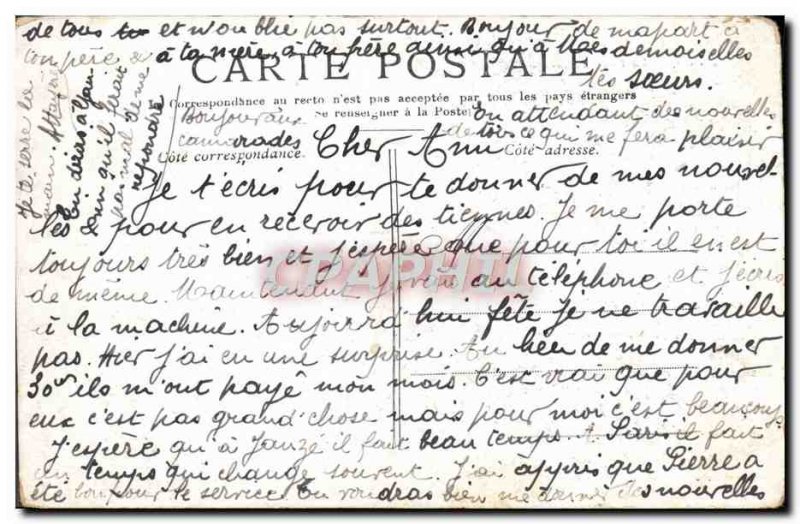 Cher Ami
Je t'écris pour te donner de mes nouvel-
les pour en recevoir des tiennes. Je me porte
toujours très bien et j'espère que pour toi il en est
de même. Maintenant je vais au téléphone et j'écris
à la machine. Aujourd'hui fête je ne travaille
pas. Hier j'ai eu une surprise. Au lieu de me donner
30 ils m'ont payé mon mois. C'est vrai que pour
eux c'est pas grand'chose mais pour moi c'est beaucoup
J'espère qu'à Janzé il fait beau temps. A Paris il fait
un temps qui change souvent. J'ai appris que Pierre a
été bon pour le service Tu voudras bien me donner des nouvelles
de tous et n'oublie pas surtout. Bonjour de ma part à
ton père & à ta mère, à ton père ainsi qu'à Mesdemoiselles
tes sœurs.
CARTE POSTALE
Correspondance au recto n'est pas acceptée par tous les pays étrangers
se renseigner à la Poste
Côté correspondance.
Côté adresse.
Bonjour aux
camarades
En attendant des nouvelles
de tous ce qui me fera plaisir
Je te serre la
main.
tu diras à
qu'il ferait
pas mal de me
répondre
CPAPHIL